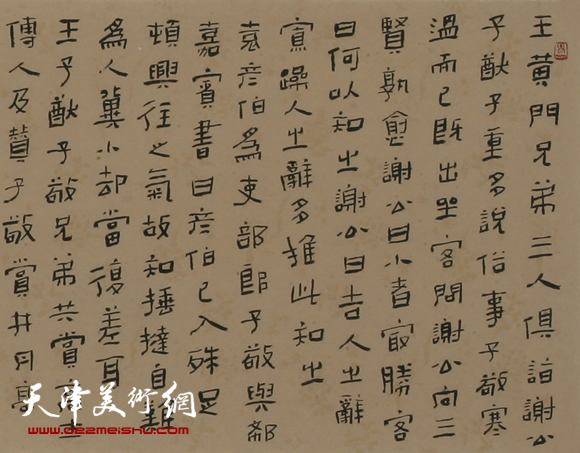 王黃門兄弟三人俱詣謝公
子猷子重多說俗事子敬寒
溫而已既出坐客問謝公向三
賢孰愈謝公曰小者冣勝客
曰何以知之謝公曰吉人之辭
寡躁人之辭多推此知之
袁彥伯為吏部郎子敬與郗
嘉賓書曰彥伯已入殊足
頓興往之氣故知捶撻自難
為人冀小却當復差耳
王子猷子敬兄弟共賞士
傳人及贊子敬賞井丹高
天津美術網
www.022meishu.com